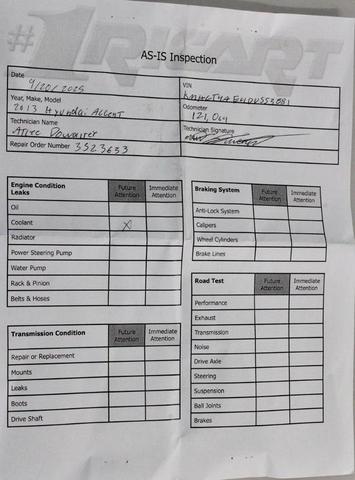 #1
AS-IS Inspection
Date
9/20/2025
VIN
Year, Make, Model
2013 Hyundai Accent
Odometer
Technician Name
Technician Signature
Repair Order Number 3523633
Engine Condition
Leaks
Future Attention
Immediate Attention
Oil
Coolant X
Radiator
Power Steering Pump
Water Pump
Rack & Pinion
Belts & Hoses
Braking System
Future Attention
Immediate Attention
Anti-Lock System
Calipers
Wheel Cylinders
Brake Lines
Transmission Condition
Future Attention
Immediate Attention
Repair or Replacement
Mounts
Leaks
Boots
Drive Shaft
Road Test
Future Attention
Immediate Attention
Performance
Exhaust
Transmission
Noise
Drive Axle
Steering
Suspension
Ball Joints
Brakes